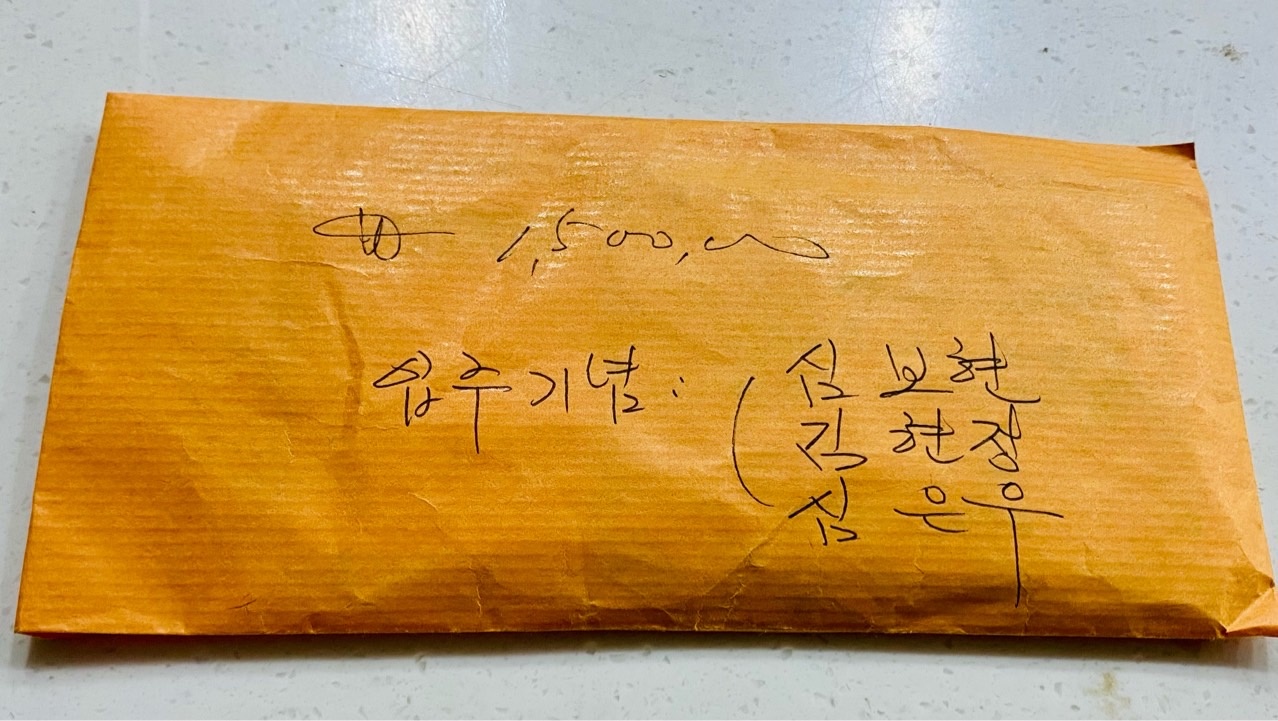 ₩ 1,500,000
입주기념 : ( 심보현
김현장
심은우